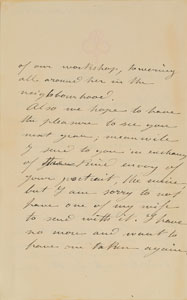 of our workshop, towering
all around her in the
neighbourhood.
Also we hope to have
the pleasure to see you
next year; meanwile
I send to you in exchange
of envoy of
your portrait, the mine
but I am sorry to not
have one of my wife
to send with it. I have
no more and want to
have one taken again